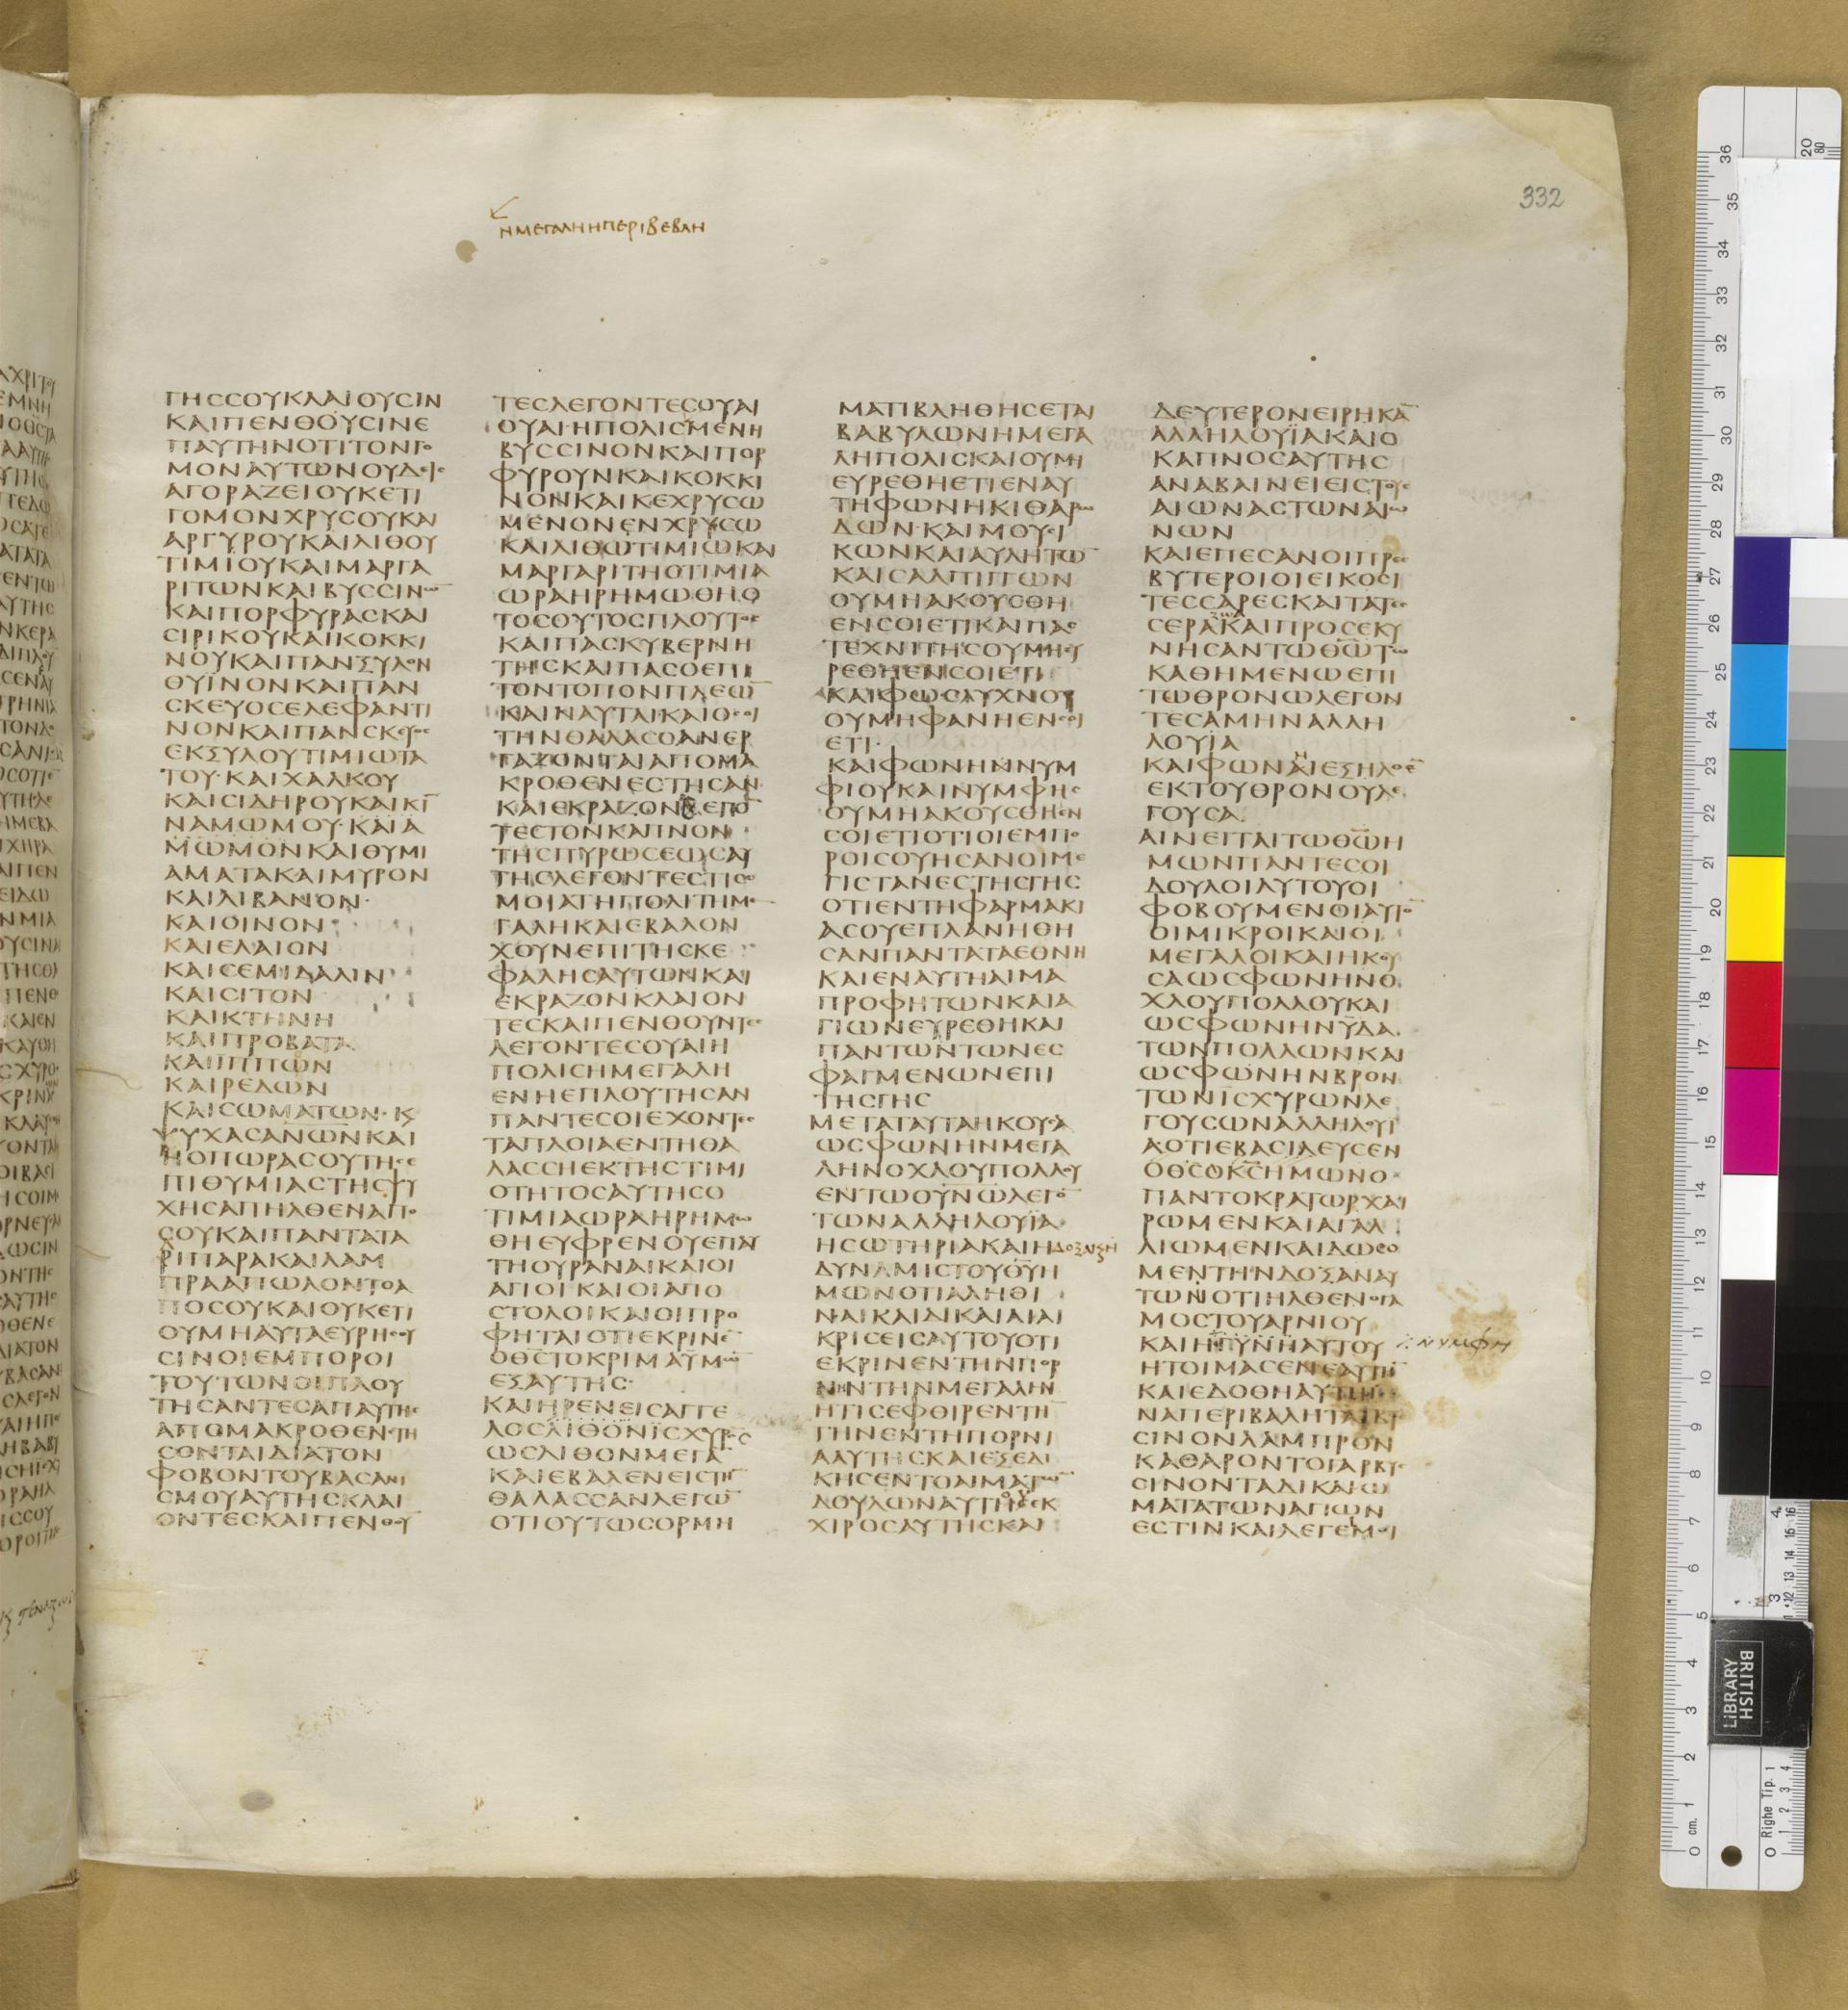 332
ΗΜΕΓΑΛΗΗΠΕΡΙΒΕΒΛΗ
ΓΗϹϹΟΥΚΛΑΙΟΥϹΙΝ
ΚΑΙΠΕΝΘΟΥϹΙΝΕ
ΠΑΥΤΗΝΟΤΙΤΟΝΓΟ
ΜΟΝΑΥΤΩΝΟΥΔΕΙϹ
ΑΓΟΡΑΖΕΙΟΥΚΕΤΙ
ΓΟΜΟΝΧΡΥϹΟΥΚΑΙ
ΑΡΓΥΡΟΥΚΑΙΛΙΘΟΥ
ΤΙΜΙΟΥΚΑΙΜΑΡΓΑ
ΡΙΤΩΝΚΑΙΒΥϹϹΙΝΩ̅
ΚΑΙΠΟΡΦΥΡΑϹΚΑΙ
ϹΙΡΙΚΟΥΚΑΙΚΟΚΚΙ
ΝΟΥΚΑΙΠΑΝΞΥΛΟΝ
ΘΥΙΝΟΝΚΑΙΠΑΝ
ϹΚΕΥΟϹΕΛΕΦΑΝΤΙ
ΝΟΝΚΑΙΠΑΝϹΚΕΥΟϹ
ΕΚΞΥΛΟΥΤΙΜΙΩΤΑ
ΤΟΥ·ΚΑΙΧΑΛΚΟΥ
ΚΑΙϹΙΔΗΡΟΥΚΑΙΚΙ̅
ΝΑΜΩΜΟΥ·ΚΑΙΑ
ΜΩΜΟΝΚΑΙΘΥΜΙ
ΑΜΑΤΑΚΑΙΜΥΡΟΝ
ΚΑΙΛΙΒΑΝΟΝ·
ΚΑΙΟΙΝΟΝ
ΚΑΙΕΛΑΙΟΝ
ΚΑΙϹΕΜΙΔΑΛΙΝ
ΚΑΙϹΙΤΟΝ
ΚΑΙΚΤΗΝΗ
ΚΑΙΠΡΟΒΑΤΑ
ΚΑΙΙΠΠΩΝ
ΚΑΙΡΕΔΩΝ
ΚΑΙϹΩΜΑΤΩΝ·Κ
ΨΥΧΑϹΑΝΩΝΚΑΙ
ΗΟΠΩΡΑϹΟΥΤΗϹΕ
ΠΙΘΥΜΙΑϹΤΗϹΨΥ
ΧΗϹΑΠΗΛΘΕΝΑΠΟ
ϹΟΥΚΑΙΠΑΝΤΑΤΑ
ΛΙΠΑΡΑΚΑΙΛΑΜ
ΠΡΑΑΠΩΛΟΝΤΟΑ
ΠΟϹΟΥΚΑΙΟΥΚΕΤΙ
ΟΥΜΗΑΥΤΑΕΥΡΗϹΟΥ
ϹΙΝΟΙΕΜΠΟΡΟΙ
ΤΟΥΤΩΝΟΙΠΛΟΥ
ΤΗϹΑΝΤΕϹΑΠΑΥΤΗϹ
ΑΠΟΜΑΚΡΟΘΕΝϹΤΗ
ϹΟΝΤΑΙΔΙΑΤΟΝ
ΦΟΒΟΝΤΟΥΒΑϹΑΝΙ
ϹΜΟΥΑΥΤΗϹΚΛΑΙ
ΟΝΤΕϹΚΑΙΠΕΝΘΟΥ̅
ΤΕϹΛΕΓΟΝΤΕϹΟΥΑΙ
ΟΥΑΙΗΠΟΛΙϹΜΕΝΗ
ΒΥϹϹΙΝΟΝΚΑΙΠΟΡ
ΦΥΡΟΥΝΚΑΙΚΟΚΚΙ
ΝΟΝΚΑΙΚΕΧΡΥϹΩ
ΜΕΝΟΝΕΝΧΡΥϹΩ
ΚΑΙΛΙΘΩΤΙΜΙΩΚΑΙ
ΜΑΡΓΑΡΙΤΗΟΤΙΜΙΑ
ΩΡΑΗΡΗΜΩΘΗΟ
ΤΟϹΟΥΤΟϹΠΛΟΥΤΟϹ
ΚΑΙΠΑϹΚΥΒΕΡΝΗ
ΤΗϹΚΑΙΠΑϹΟΕΠΙ
ΤΟΝΤΟΠΟΝΠΛΕΩ̅
ΚΑΙΝΑΥΤΑΙΚΑΙΟϹΟΙ
ΤΗΝΘΑΛΑϹϹΑΝΕΡ
ΓΑΖΟΝΤΑΙΑΠΟΜΑ
ΚΡΟΘΕΝΕϹΤΗϹΑΝ
ΚΑΙΕΚΡΑΖΟΝΒΛΕΠΟ̅
ΤΕϹΤΟΝΚΑΠΝΟΝ
ΤΗϹΠΥΡΩϹΕΩϹΑΥ
ΤΗϹΛΕΓΟΝΤΕϹΤΙϹΟ
ΜΟΙΑΤΗΠΟΛΙΤΗΜΕ
ΓΑΛΗΚΑΙΕΒΑΛΟΝ
ΧΟΥΝΕΠΙΤΗϹΚΕ
ΦΑΛΗϹΑΥΤΩΝΚΑΙ
ΕΚΡΑΖΟΝΚΛΑΙΟΝ
ΤΕϹΚΑΙΠΕΝΘΟΥΝΤΕϹ
ΛΕΓΟΝΤΕϹΟΥΑΙΗ
ΠΟΛΙϹΗΜΕΓΑΛΗ
ΕΝΗΕΠΛΟΥΤΗϹΑΝ
ΠΑΝΤΕϹΟΙΕΧΟΝΤΕϹ
ΤΑΠΛΟΙΑΕΝΤΗΘΑ
ΛΑϹϹΗΕΚΤΗϹΤΙΜΙ
ΟΤΗΤΟϹΑΥΤΗϹΟ
ΤΙΜΙΑΩΡΑΗΡΗΜΩ
ΘΗΕΥΦΡΕΝΟΥΕΠΑΥ
ΤΗΟΥΡΑΝΑΙΚΑΙΟΙ
ΑΓΙΟΙΚΑΙΟΙΑΠΟ
ϹΤΟΛΟΙΚΑΙΟΙΠΡΟ
ΦΗΤΑΙΟΤΙΕΚΡΙΝΕ̅
ΟΘ̅Ϲ̅ΤΟΚΡΙΜΑΥΜΩ̅
ΕΞΑΥΤΗϹ·
ΚΑΙΗΡΕΝΕΙϹΑΓΓΕ
ΛΟϹΛΙΘΟΝΙϹΧΥΡΟϹ
ΩϹΛΙΘΟΝΜΕΓΑ̅
ΚΑΙΕΒΑΛΕΝΕΙϹΤΗ̅
ΘΑΛΑϹϹΑΝΛΕΓΩ̅
ΟΤΙΟΥΤΩϹΟΡΜΗ
ΜΑΤΙΒΛΗΘΗϹΕΤΑΙ
ΒΑΒΥΛΩΝΗΜΕΓΑ
ΛΗΠΟΛΙϹΚΑΙΟΥΜΗ
ΕΥΡΕΘΗΕΤΙΕΝΑΥ
ΤΗΦΩΝΗΚΙΘΑΡΩ
ΔΩΝ·ΚΑΙΜΟΥϹΙ
ΚΩΝΚΑΙΑΥΛΗΤΩ̅
ΚΑΙϹΑΛΠΙΓΓΩΝ
ΟΥΜΗΑΚΟΥϹΘΗ
ΕΝϹΟΙΕΤΙΚΑΙΠΑϹ
ΤΕΧΝΙΤΗϹΟΥΜΗΕΥ
ΡΕΘΗΕΝϹΟΙΕΤΙ
ΚΑΙΦΩϹΛΥΧΝΟΥ
ΟΥΜΗΦΑΝΗΕΝϹΟΙ
ΕΤΙ·
ΚΑΙΦΩΝΗΝΝΥΜ
ΦΙΟΥΚΑΙΝΥΜΦΗϹ
ΟΥΜΗΑΚΟΥϹΘΗΕΝ
ϹΟΙΕΤΙΟΤΙΟΙΕΜΠΟ
ΡΟΙϹΟΥΗϹΑΝΟΙΜΕ
ΓΙϹΤΑΝΕϹΤΗϹΓΗϹ
ΟΤΙΕΝΤΗΦΑΡΜΑΚΙ
ΑϹΟΥΕΠΛΑΝΗΘΗ
ϹΑΝΠΑΝΤΑΤΑΕΘΝΗ
ΚΑΙΕΝΑΥΤΗΑΙΜΑ
ΠΡΟΦΗΤΩΝΚΑΙΑ
ΓΙΩΝΕΥΡΕΘΗΚΑΙ
ΠΑΝΤΩΝΤΩΝΕϹ
ΦΑΓΜΕΝΩΝΕΠΙ
ΤΗϹΓΗϹ
ΜΕΤΑΤΑΥΤΑΗΚΟΥϹΑ
ΩϹΦΩΝΗΝΜΕΓΑ
ΛΗΝΟΧΛΟΥΠΟΛΛΟΥ
ΕΝΤΩΟΥΝΩΛΕΓΟ̅
ΤΩΝΑΛΛΗΛΟΥΪΑ·
ΗϹΩΤΗΡΙΑΚΑΙΗΔΟΞΑΚΑΙΗ
ΔΥΝΑΜΙϹΤΟΥΘΥΗ
ΜΩΝΟΤΙΑΛΗΘΙ
ΝΑΙΚΑΙΔΙΚΑΙΑΙΑΙ
ΚΡΙϹΕΙϹΑΥΤΟΥΟΤΙ
ΕΚΡΙΝΕΝΤΗΝΠΟΡ
ΝΗΝΤΗΝΜΕΓΑΛΗΝ
ΗΤΙϹΕΦΘΙΡΕΝΤΗ̅
ΓΗΝΕΝΤΗΠΟΡΝΙ
ΑΑΥΤΗϹΚΑΙΕΞΕΔΙ
ΚΗϹΕΝΤΟΑΙΜΑΤΩ̅
ΔΟΥΛΩΝΑΥΤΟΥΕΚ
ΧΙΡΟϹΑΥΤΗϹΚΑΙ
ΔΕΥΤΕΡΟΝΕΙΡΗΚΑ̅
ΑΛΛΗΛΟΥΪΑΚΑΙΟ
ΚΑΠΝΟϹΑΥΤΗϹ
ΑΝΑΒΑΙΝΕΙΕΙϹΤΟΥϹ
ΑΙΩΝΑϹΤΩΝΑΙΩ
ΝΩΝ
ΚΑΙΕΠΕϹΑΝΟΙΠΡΕϹ
ΒΥΤΕΡΟΙΟΙΕΙΚΟϹΙ
ΤΕϹϹΑΡΕϹΚΑΙΤΑΤΕϹ
ϹΕΡΑΖΩΑΚΑΙΠΡΟϹΕΚΥ
ΝΗϹΑΝΤΩΘ̅Ω̅ΤΩ
ΚΑΘΗΜΕΝΩΕΠΙ
ΤΩΘΡΟΝΩΛΕΓΟΝ
ΤΕϹΑΜΗΝΑΛΛΗ
ΛΟΥΪΑ
ΚΑΙΦΩΝΑΙΕΞΗΛΘΟ̅
ΕΚΤΟΥΘΡΟΝΟΥΛΕ
ΓΟΥϹΑ
ΑΙΝΕΙΤΑΙΤΩΘ̅Ω̅Η
ΜΩΝΠΑΝΤΕϹΟΙ
ΔΟΥΛΟΙΑΥΤΟΥΟΙ
ΦΟΒΟΥΜΕΝΟΙΑΥΤΟ̅
ΟΙΜΙΚΡΟΙΚΑΙΟΙ
ΜΕΓΑΛΟΙΚΑΙΗΚΟΥ
ϹΑΩϹΦΩΝΗΝΟ
ΧΛΟΥΠΟΛΛΟΥΚΑΙ
ΩϹΦΩΝΗΝΫΔΑ
ΤΩΝΠΟΛΛΩΝΚΑΙ
ΩϹΦΩΝΗΝΒΡΟΝ
ΤΩΝΙϹΧΥΡΩΝΛΕ
ΓΟΥϹΩΝΑΛΛΗΛΟΥΪ
ΑΟΤΙΕΒΑϹΙΛΕΥϹΕΝ
ΟΘ̅Ϲ̅ΟΚ̅Ϲ̅ΗΜΩΝΟ
ΠΑΝΤΟΚΡΑΤΩΡΧΑΙ
ΡΩΜΕΝΚΑΙΑΓΑΛ
ΛΙΩΜΕΝΚΑΙΔΩϹΟ
ΜΕΝΤΗΝΔΟΞΑΝΑΥ
ΤΩΝΟΤΙΗΛΘΕΝΟΓΑ
ΜΟϹΤΟΥΑΡΝΙΟΥ
ΚΑΙΗΓΥΝΗΑΥΤΟΥ
ΝΥΜΦΗ
ΗΤΟΙΜΑϹΕΝΕΑΥΤΗ̅
ΚΑΙΕΔΟΘΗΑΥΤΗΙ
ΝΑΠΕΡΙΒΑΛΗΤΑΙΒΥϹ
ϹΙΝΟΝΛΑΜΠΡΟΝ
ΚΑΘΑΡΟΝΤΟΓΑΡΒΥϹ
ϹΙΝΟΝΤΑΔΙΚΑΙΩ
ΜΑΤΑΤΩΝΑΓΙΩΝ
ΕϹΤΙΝΚΑΙΛΕΓΕΙΜΟΙ
BRITISH
LIBRARY
Righe Tip. 1